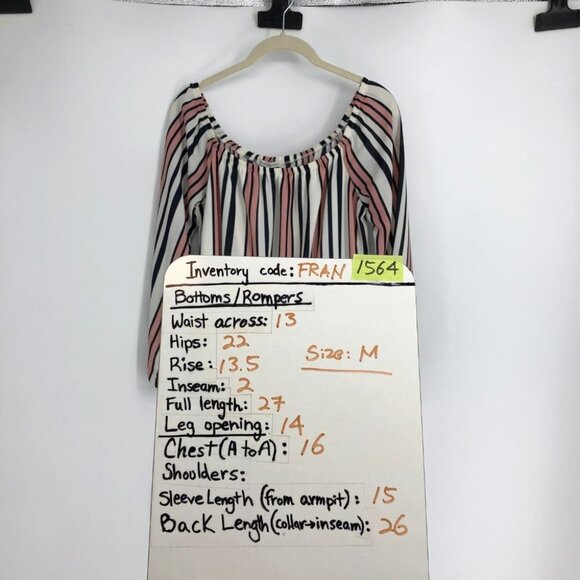 Inventory code: FRAN 1564
Bottoms/Rompers
Waist across: 13
Hips: 22
Rise: 13.5
Size: M
Inseam: 2
Full length: 27
Leg opening: 14
Chest (A to A): 16
Shoulders:
Sleeve Length (from armpit): 15
Back Length (collar→inseam): 26